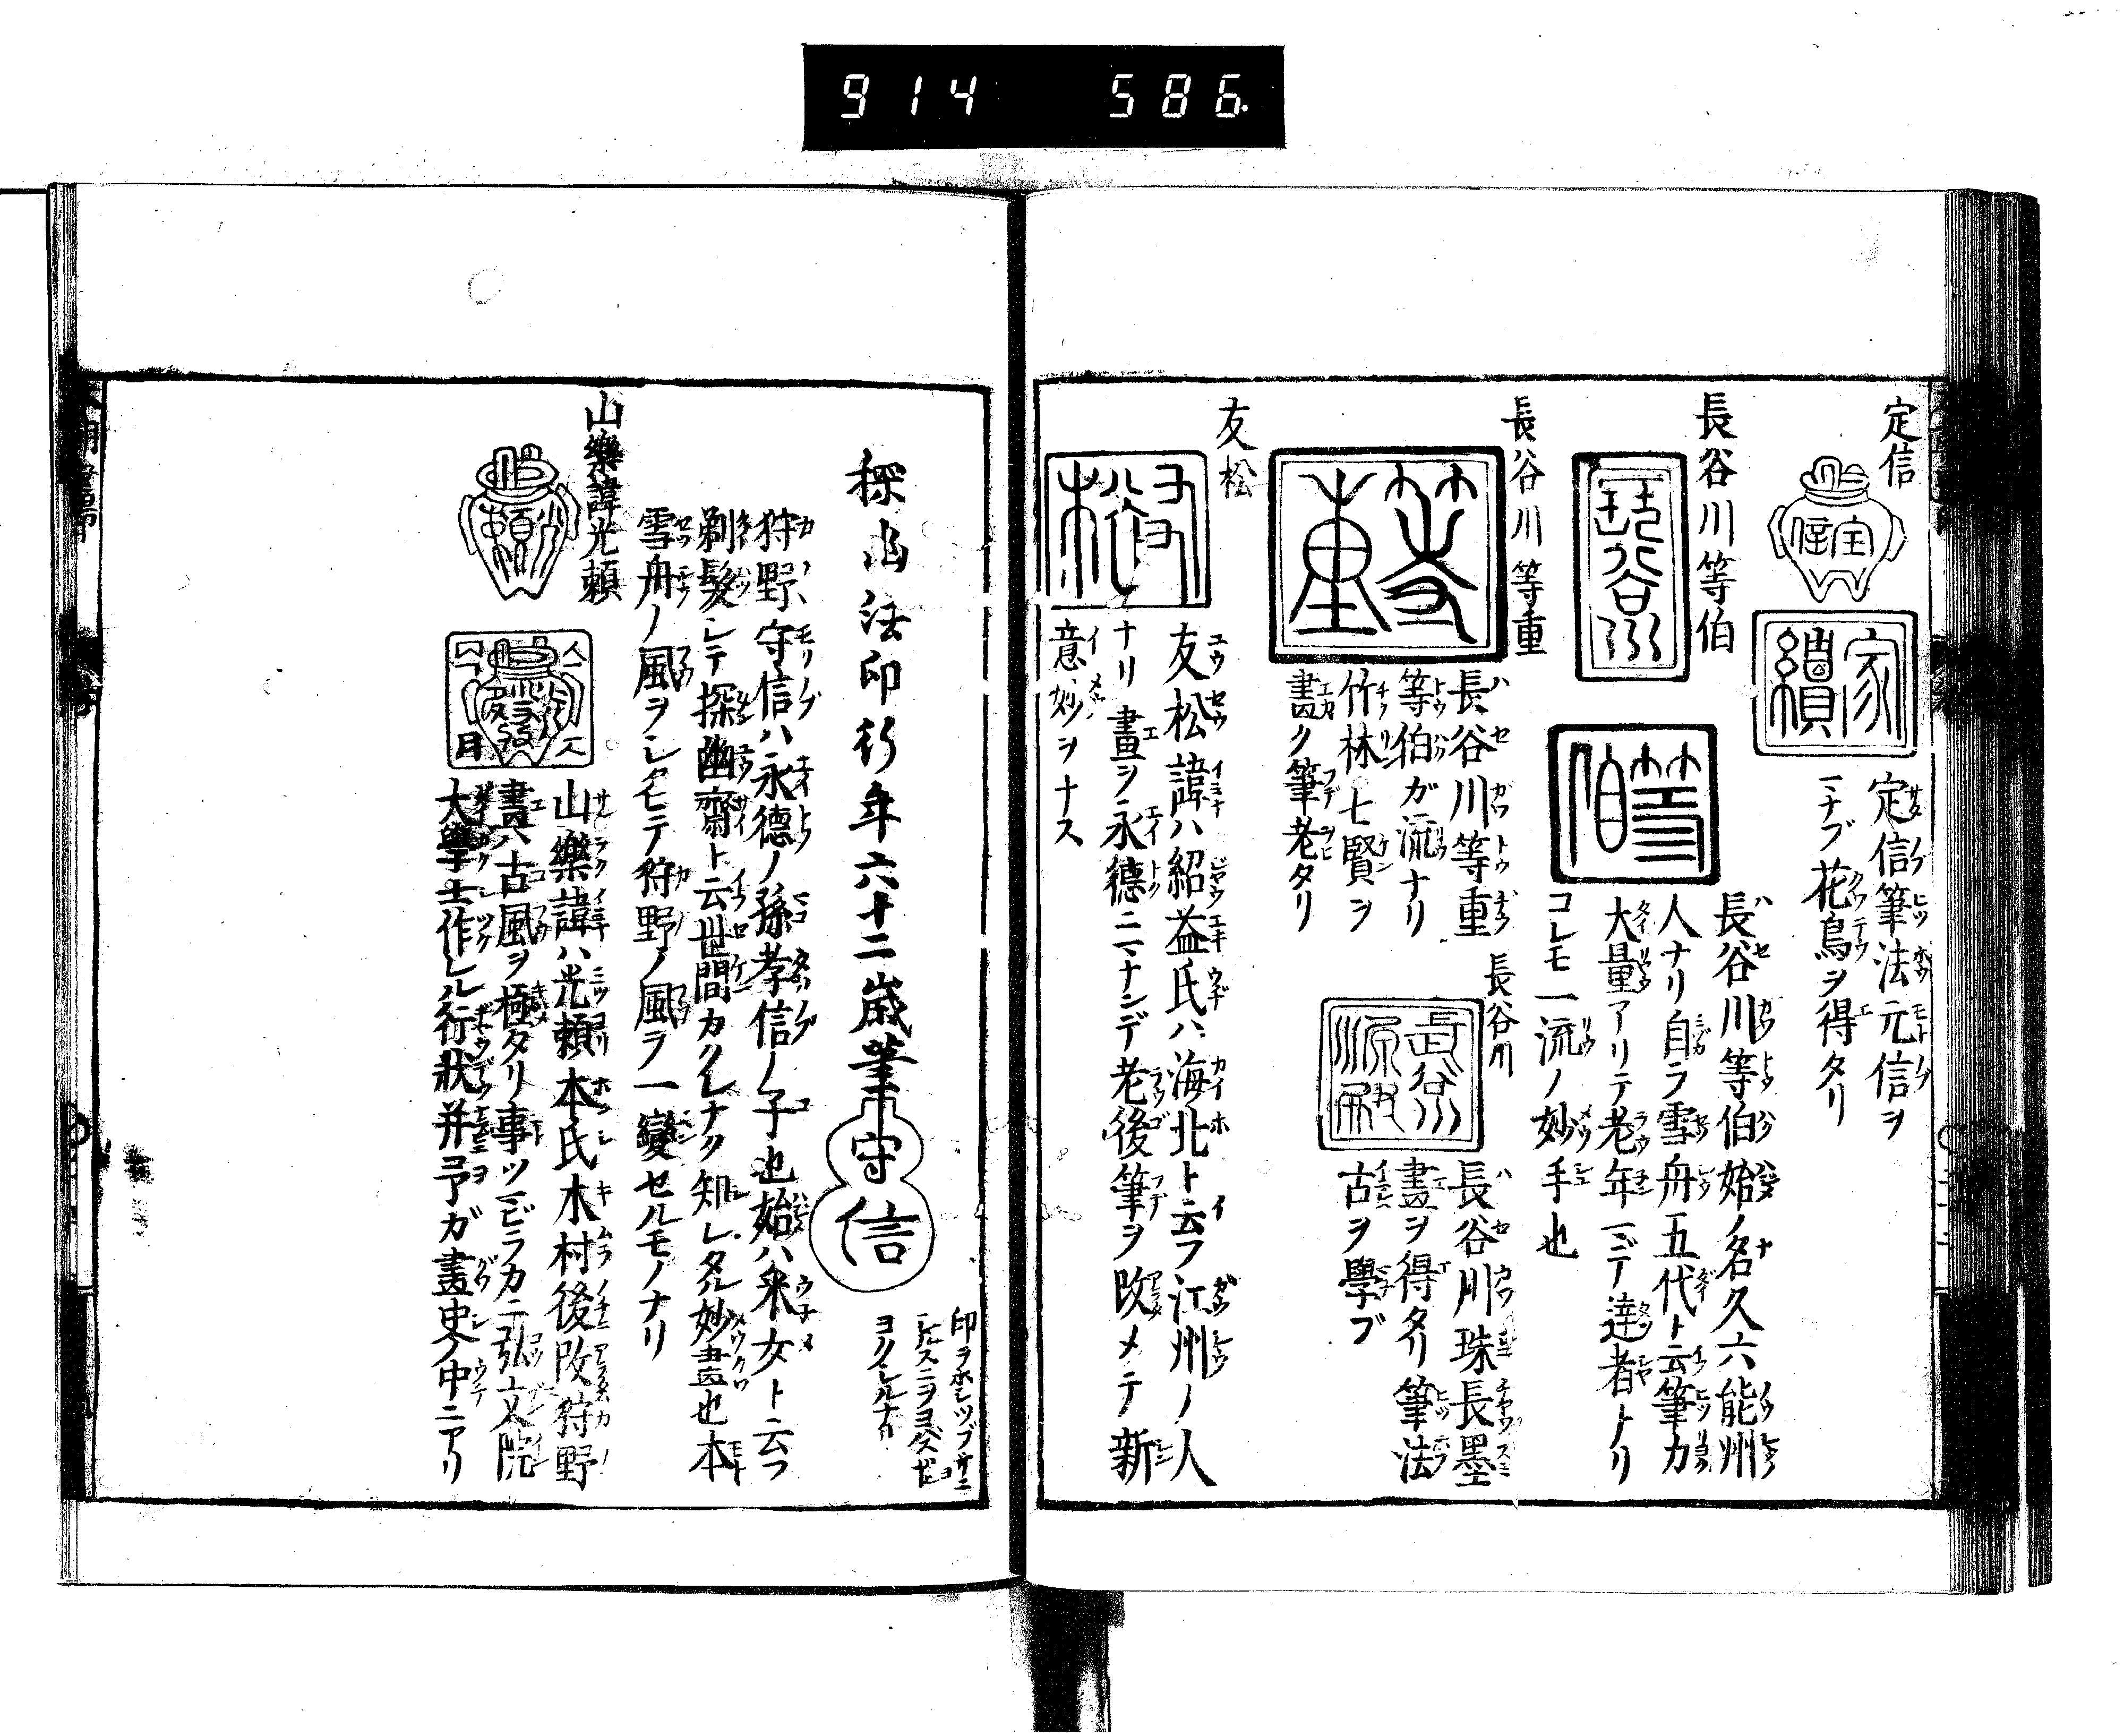 914 586
定信
定信
家續
定信筆法元信ヲ
マナブ花鳥ヲ得タリ
長谷川等伯
長谷川
等伯
長谷川等伯始ノ名久六能州
人ナリ自ラ雪舟五代ト云筆力
大量アリテ老年マデ達者トリ
コレモ一流ノ妙手也
長谷川等重
等重
長谷川等重
等伯ガ流ナリ
竹林七賢ヲ
畫ク筆老タリ
長谷川
長谷川珠長墨
畫ヲ得タリ筆法
古ヲ學ブ
友松
友松
友松諱ハ紹益氏ハ海北ト云フ江州ノ人
ナリ畫ヲ永德ニマナンデ老後筆ヲ改メテ新
意妙ヲナス
探幽法印行年六十二歳筆
守信
狩野守信ハ永德ノ孫孝信ノ子也始ハ釆女ト云フ
剃髮シテ探幽齋ト云世間カクレナク知レタル妙畫也本
雪舟ノ風ヲシタヒテ狩野ノ風ヲ一變セルモノナリ
山樂諱光賴
山樂諱ハ光賴本氏木村後改狩野
畫ハ古風ヲ極タリ事ツマビラカニ弘文院
大學士作レル行狀并予ガ畫史ノ中ニアリ